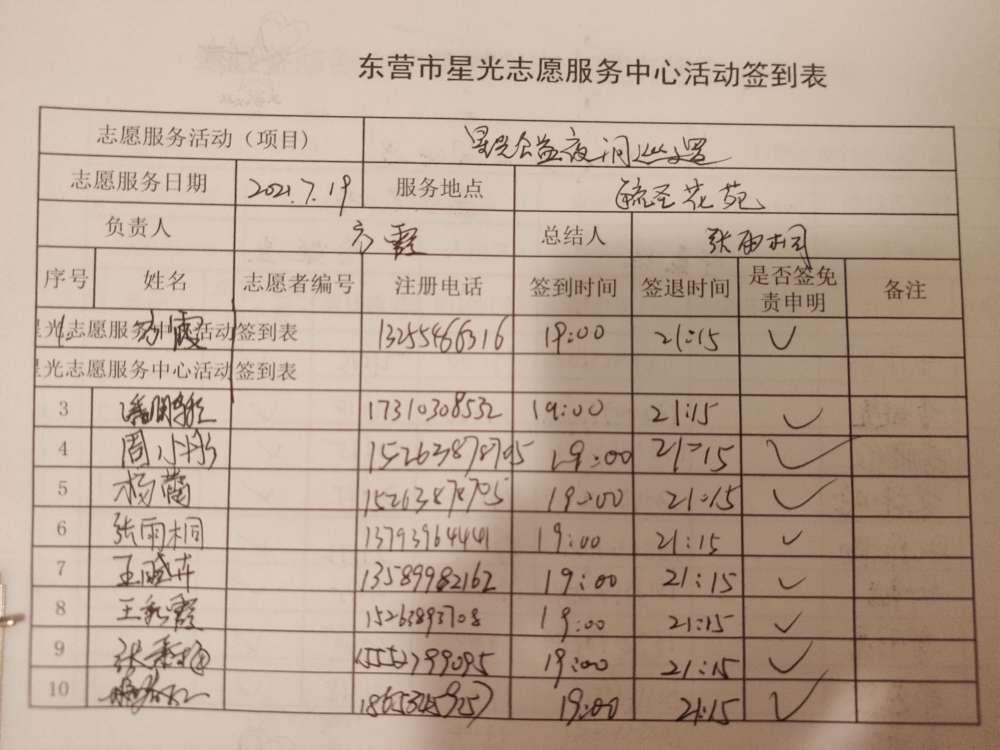 东营市星光志愿服务中心活动签到表
志愿服务活动（项目） 星光公益夜间巡逻
志愿服务日期 2021.7.19 服务地点 花苑
负责人 方霞 总结人 张雨桐
序号 姓名 志愿者编号 注册电话 签到时间 签退时间 是否签免责申明 备注
星光志愿服务中心活动签到表 1 方霞 13255466316 19:00 21:15 ✓
星光志愿服务中心活动签到表
3 17310308532 19:00 21:15 ✓
4 周小彤 19:00 21:15 ✓
5 杨 15263878705 19:00 21:15 ✓
6 张雨桐 13793964441 19:00 21:15 ✓
7 王 13589982162 19:00 21:15 ✓
8 王 霞 15263893708 19:00 21:15 ✓
9 张 19:00 21:15 ✓
10 19:00 21:15 ✓